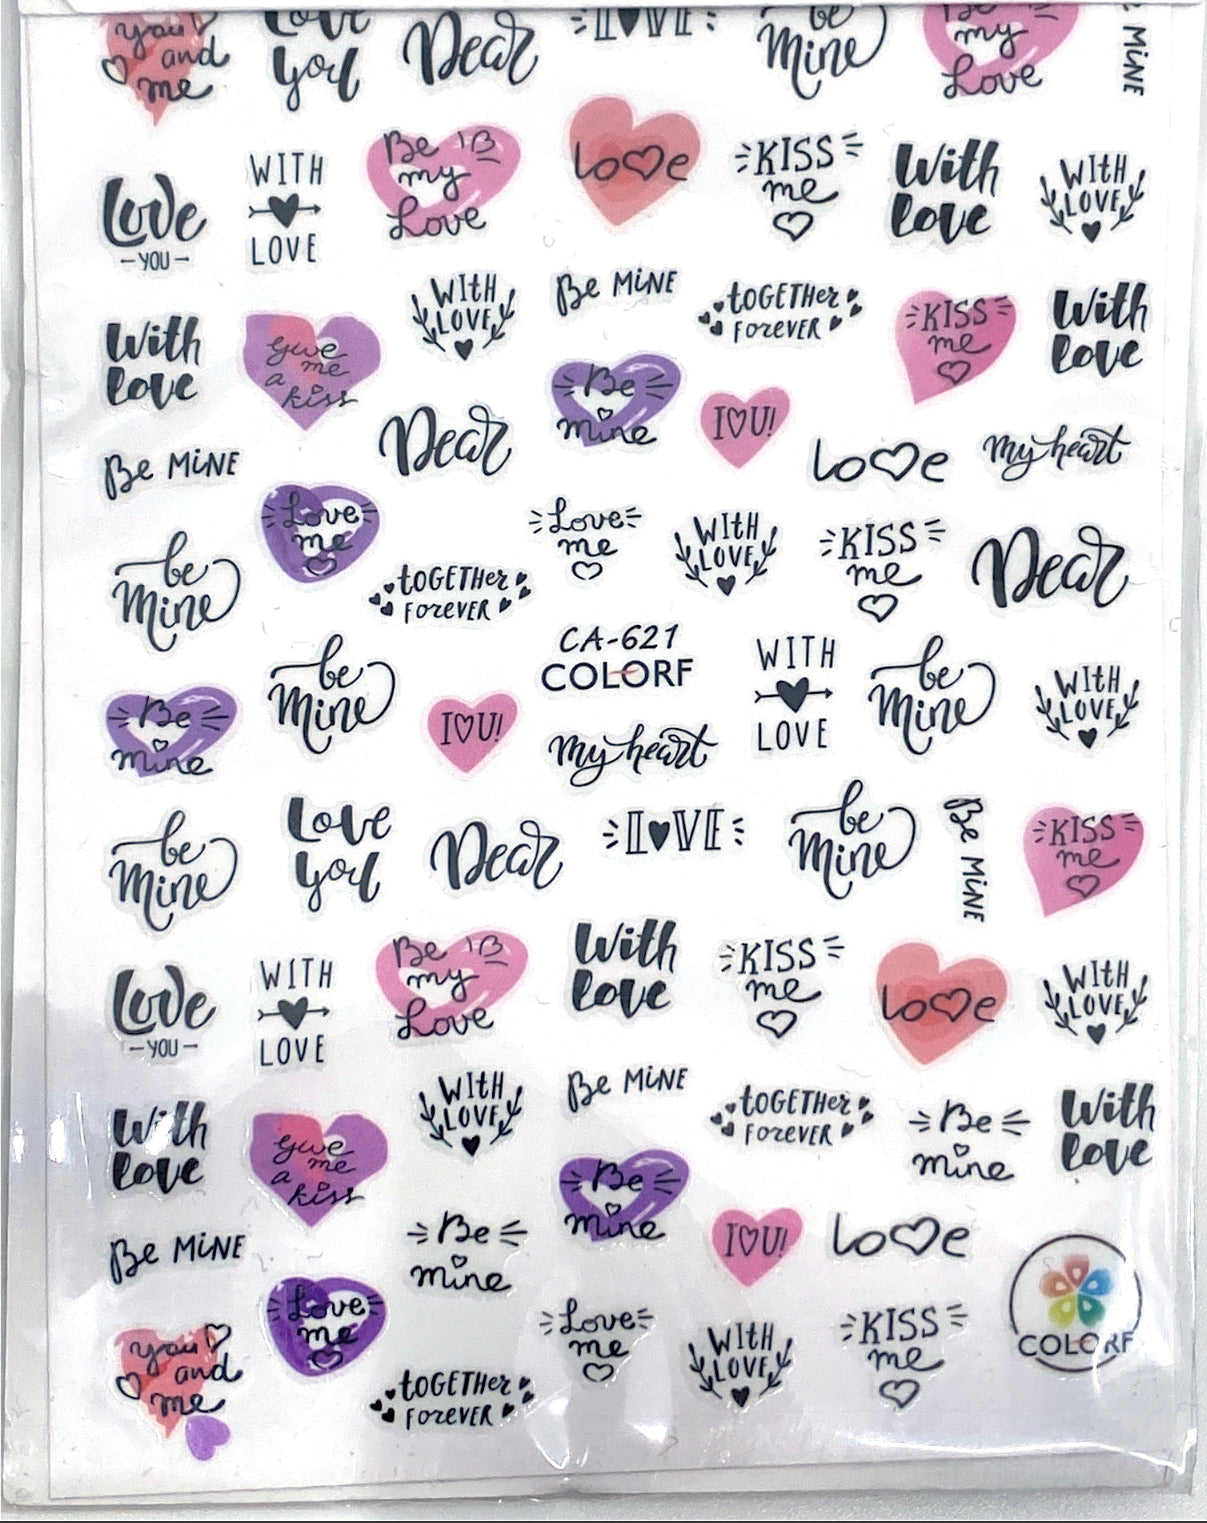 you
and
me
Love
you
Dear
LOVE
be
Mine
Be
my
Love
MINE
Love
-YOU-
WITH
LOVE
Be
my
Love
Love
KISS
me
With
love
WITH
LOVE
With
love
give
me
a
kiss
WITH
LOVE
Be MINE
TOGETHER
FOREVER
KISS
me
With
love
Be MINE
Dear
Be
mine
I♡U!
Love
my heart
be
Mine
Love
me
TOGETHER
FOREVER
Love
me
WITH
LOVE
KISS
me
Dear
Be
mine
be
Mine
I♡U!
CA-621
COLORF
my heart
WITH
LOVE
be
Mine
WITH
LOVE
be
Mine
Love
you
Dear
LOVE
be
Mine
Be MINE
KISS
me
Love
-YOU-
WITH
LOVE
Be
my
Love
With
love
KISS
me
Love
WITH
LOVE
With
love
give
me
a
kiss
WITH
LOVE
Be MINE
TOGETHER
FOREVER
Be
mine
With
love
Be MINE
Be
mine
Be
mine
I♡U!
Love
you
and
me
Love
me
TOGETHER
FOREVER
Love
me
WITH
LOVE
KISS
me
COLORF